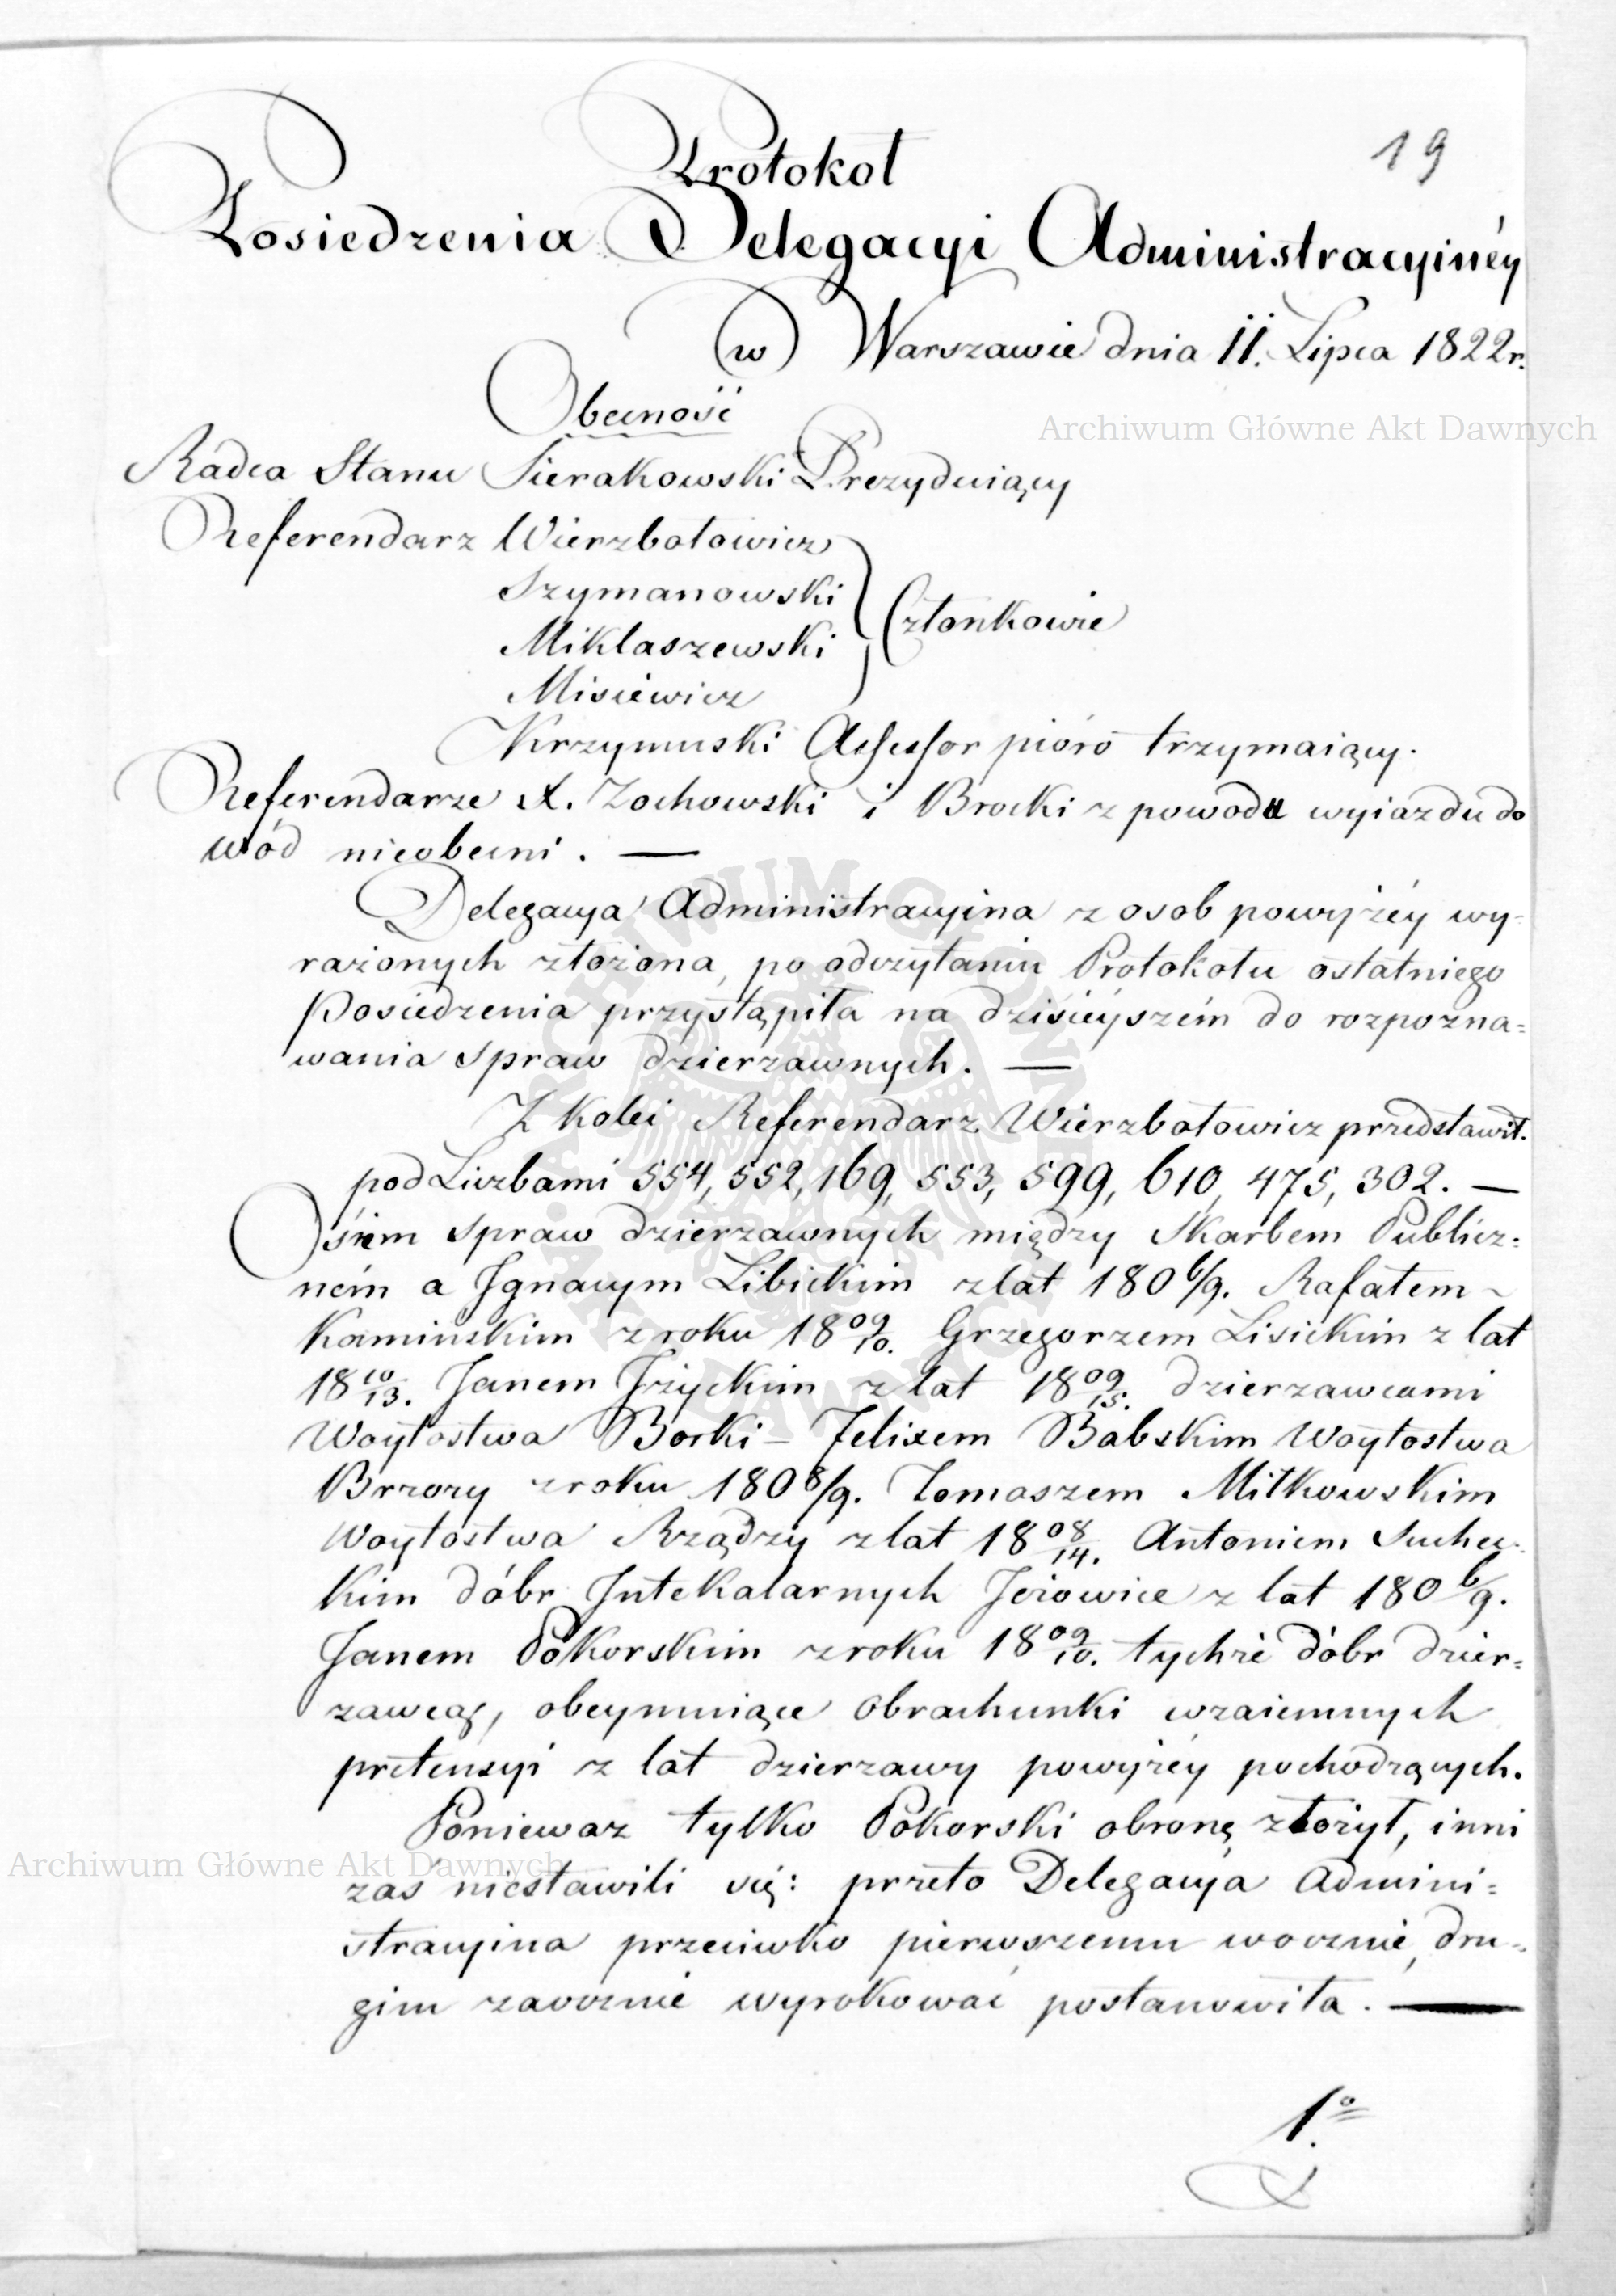 19
Protokół
Posiedzenia Delegacyi Administracyinéy
w Warszawie dnia 11. Lipca 1822r.
Obecność
Archiwum Główne Akt Dawnych
Radca Stanu Sierakowski Prezyduiący
Referendarz Wierzbołowicz
Szymanowski
Członkowie
Miklaszewski
Misiewicz
Krzymuski Assessor pióro trzymaiący.
Referendarze X. Zochowski i Brocki z powodu wyiazdu do
wód nieobecni. —
Delegacya Administracyina z osob powyżéy wy-
rażonych złożona, po odczytaniu Protokołu ostatniego
Posiedzenia przystąpiła na dzisieyszém do rozpozna=
wania spraw dzierzawnych. —
Z Kolei Referendarz Wierzbołowicz przedstawił.
pod Liczbami 554, 552, 169, 553, 599, 610, 475, 302. —
Ośiem spraw dzierzawnych między Skarbem Publicz=
ném a Ignacym Libickim z lat 180 6/9. Rafałem ~
Kaminskim z roku 18 09/10. Grzegorzem Lisickim z lat
18 10/13. Janem Jżyckim z lat 18 09/15. dzierzawcami
Woytostwa Borki — Felixem Babskim Woytostwa
Brzozy z roku 180 8/9. Tomaszem Mitkowskim
Woytostwa Rządzy z lat 18 08/14. Antoniem Suchec-
kim dóbr Intekalarnych Jeżowice z lat 180 6/9.
Janem Pokorskim z roku 18 09/10. tychże dóbr dzier=
zawcą, obeymuiące obrachunki wzaiemnych
pretensyi z lat dzierzawy powyżéy pochodzących.
Poniewaz tylko Pokorski obronę złożył, inni
Archiwum Główne Akt Dawnych
zaś niestawili się: przeto Delegacya Admini=
stracyina przeciwko pierwszemu wocznie, dru=
gim zaocznie wyrokować postanowiła. —
1º